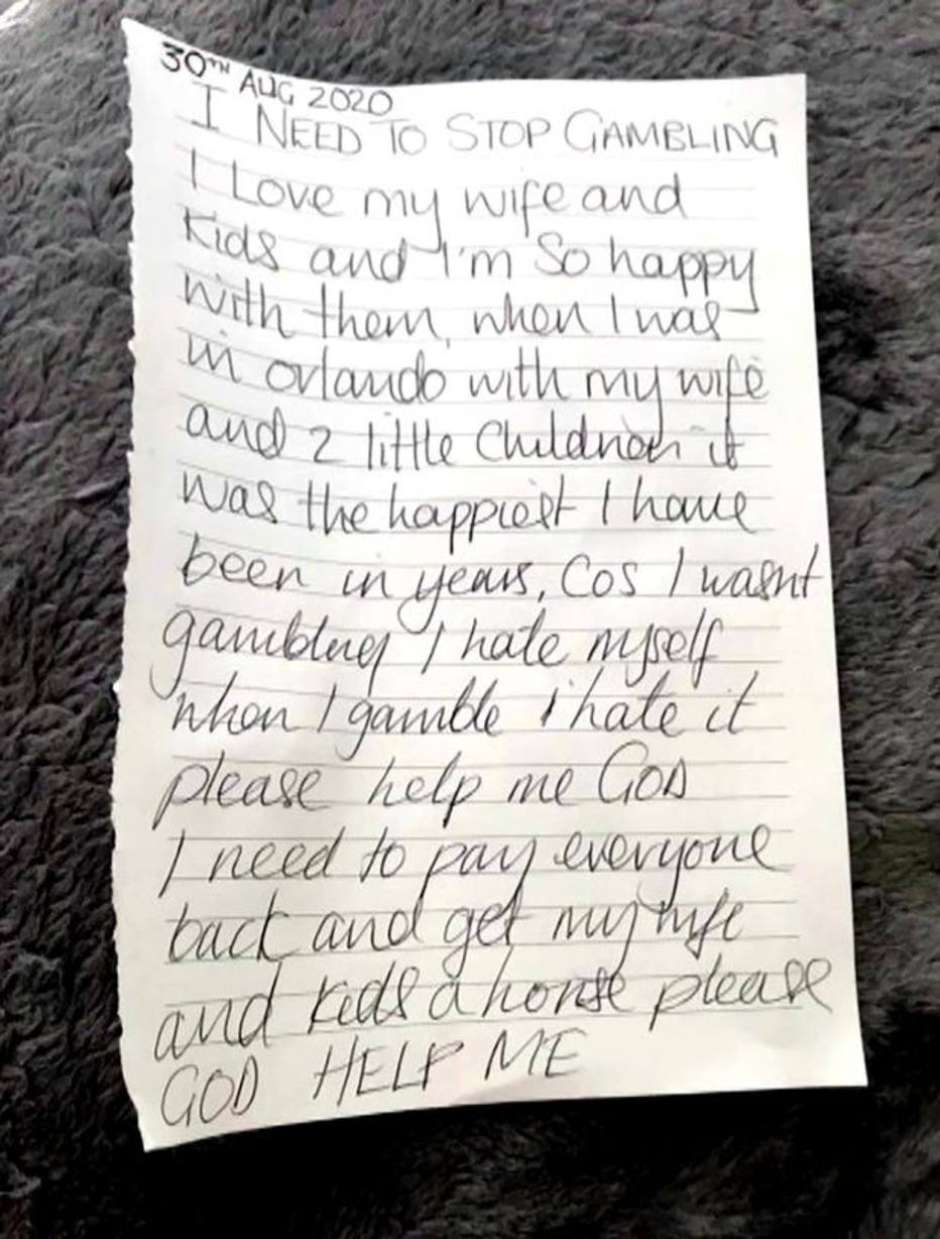 30TH AUG 2020
I NEED TO STOP GAMBLING
I Love my wife and
Kids and I'm So happy
with them, when I was
in orlando with my wife
and 2 little Children it
was the happiest I have
been in years, Cos I wasnt
gambling I hate myself
when I gamble I hate it
please help me GOD
I need to pay everyone
back and get my wife
and kids a house please
GOD HELP ME